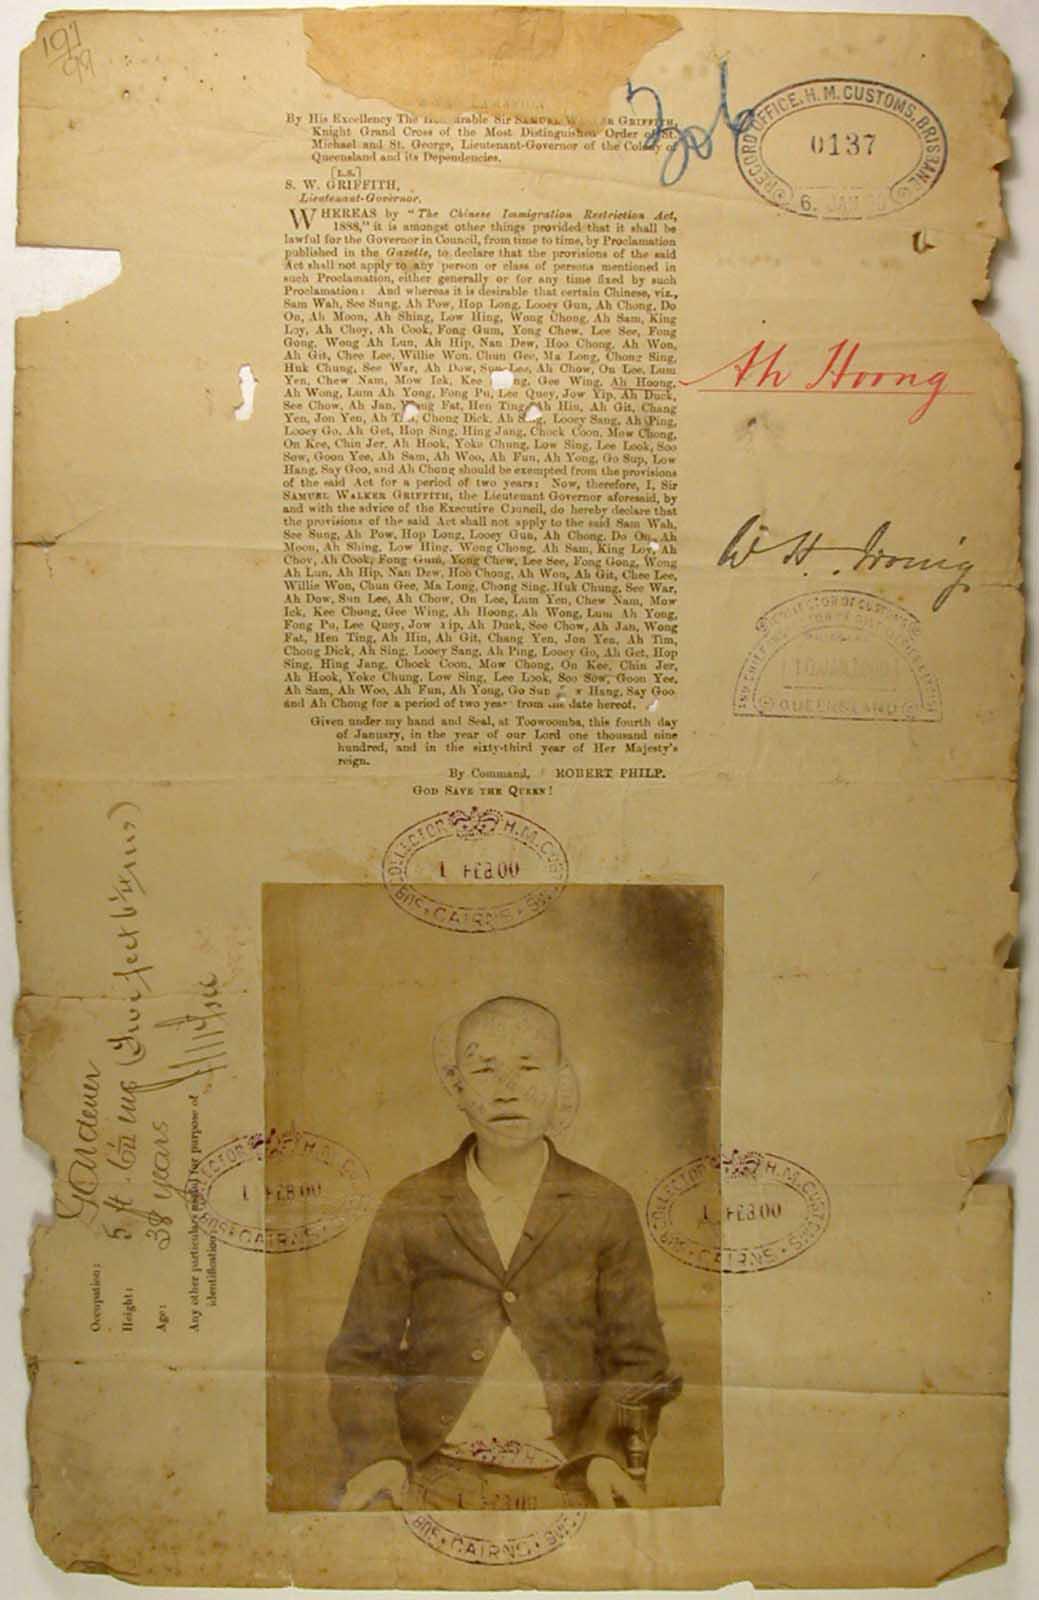 197
99
306
RECORD OFFICE, H.M. CUSTOMS, BRISBANE
0137
6. JAN
By His Excellency The Honourable Sir SAMUEL W ER GRIFFITH,
Knight Grand Cross of the Most Distinguished Order of St.
Michael and St. George, Lieutenant-Governor of the Colony of
Queensland and its Dependencies.
[L.S.]
S. W. GRIFFITH,
Lieutenant-Governor.
WHEREAS by "The Chinese Immigration Restriction Act,
1888," it is amongst other things provided that it shall be
lawful for the Governor in Council, from time to time, by Proclamation
published in the Gazette, to declare that the provisions of the said
Act shall not apply to any person or class of persons mentioned in
such Proclamation, either generally or for any time fixed by such
Proclamation: And whereas it is desirable that certain Chinese, viz.,
Sam Wah, See Sung, Ah Pow, Hop Long, Looey Gun, Ah Chong, Do
On, Ah Moon, Ah Shing, Low Hing, Wong Chong, Ah Sam, King
Loy, Ah Choy, Ah Cook, Fong Gum, Yong Chew, Lee See, Fong
Gong, Wong Ah Lun, Ah Hip, Nan Dew, Hoo Chong, Ah Won,
Ah Git, Chee Lee, Willie Won, Chun Gee, Ma Long, Chong Sing,
Huk Chung, See War, Ah Dow, Sun Lee, Ah Chow, On Lee, Lum
Yen, Chew Nam, Mow Ick, Kee ng, Gee Wing, Ah Hoong,
Ah Wong, Lum Ah Yong, Fong Pu, Lee Quey, Jow Yip, Ah Duck,
See Chow, Ah Jan, Wong Fat, Hen Ting, Ah Hin, Ah Git, Chang
Yen, Jon Yen, Ah Tim, Chong Dick, Ah Sing, Looey Sang, Ah Ping,
Looey Go, Ah Get, Hop Sing, Hing Jang, Chock Coon, Mow Chong,
On Kee, Chin Jer, Ah Hook, Yoke Chung, Low Sing, Lee Look, Soo
Sow, Goon Yee, Ah Sam, Ah Woo, Ah Fun, Ah Yong, Go Sup, Low
Hang, Say Goo, and Ah Chong should be exempted from the provisions
of the said Act for a period of two years: Now, therefore, I, Sir
SAMUEL WALKER GRIFFITH, the Lieutenant Governor aforesaid, by
and with the advice of the Executive Council, do hereby declare that
the provisions of the said Act shall not apply to the said Sam Wah,
See Sung, Ah Pow, Hop Long, Looey Gun, Ah Chong, Do On, Ah
Moon, Ah Shing, Low Hing, Wong Chong, Ah Sam, King Loy, Ah
Choy, Ah Cook, Fong Gum, Yong Chew, Lee See, Fong Gong, Wong
Ah Lun, Ah Hip, Nan Dew, Hoo Chong, Ah Won, Ah Git, Chee Lee,
Willie Won, Chun Gee, Ma Long, Chong Sing, Huk Chung, See War,
Ah Dow, Sun Lee, Ah Chow, On Lee, Lum Yen, Chew Nam, Mow
Ick, Kee Chong, Gee Wing, Ah Hoong, Ah Wong, Lum Ah Yong,
Fong Pu, Lee Quey, Jow Yip, Ah Duck, See Chow, Ah Jan, Wong
Fat, Hen Ting, Ah Hin, Ah Git, Chang Yen, Jon Yen, Ah Tim,
Chong Dick, Ah Sing, Looey Sang, Ah Ping, Looey Go, Ah Get, Hop
Sing, Hing Jang, Chock Coon, Mow Chong, On Kee, Chin Jer,
Ah Hook, Yoke Chung, Low Sing, Lee Look, Soo Sow, Goon Yee,
Ah Sam, Ah Woo, Ah Fun, Ah Yong, Go Sup w Hang, Say Goo
and Ah Chong for a period of two years from the date hereof.
Given under my hand and Seal, at Toowoomba, this fourth day
of January, in the year of our Lord one thousand nine
hundred, and in the sixty-third year of Her Majesty's
reign.
By Command, ROBERT PHILP.
GOD SAVE THE QUEEN!
Ah Hoong
W H Irving
COLLECTOR OF CUSTOMS
QUEENSLAND
COLLECTOR H.M. CUS
1 FEB.00
CAIRNS
COLLECTOR H.M. CUSTOMS
1 FEB.00
CAIRNS
COLLECTOR H.M. CUSTOMS
1 FEB.00
CAIRNS
1 FEB.00
CAIRNS
Occupation: Gardener
Height: 5 ft 6¼ ins (Five feet 6¼ ins)
Age: 38 years
Any other particulars useful for purpose of
identification: